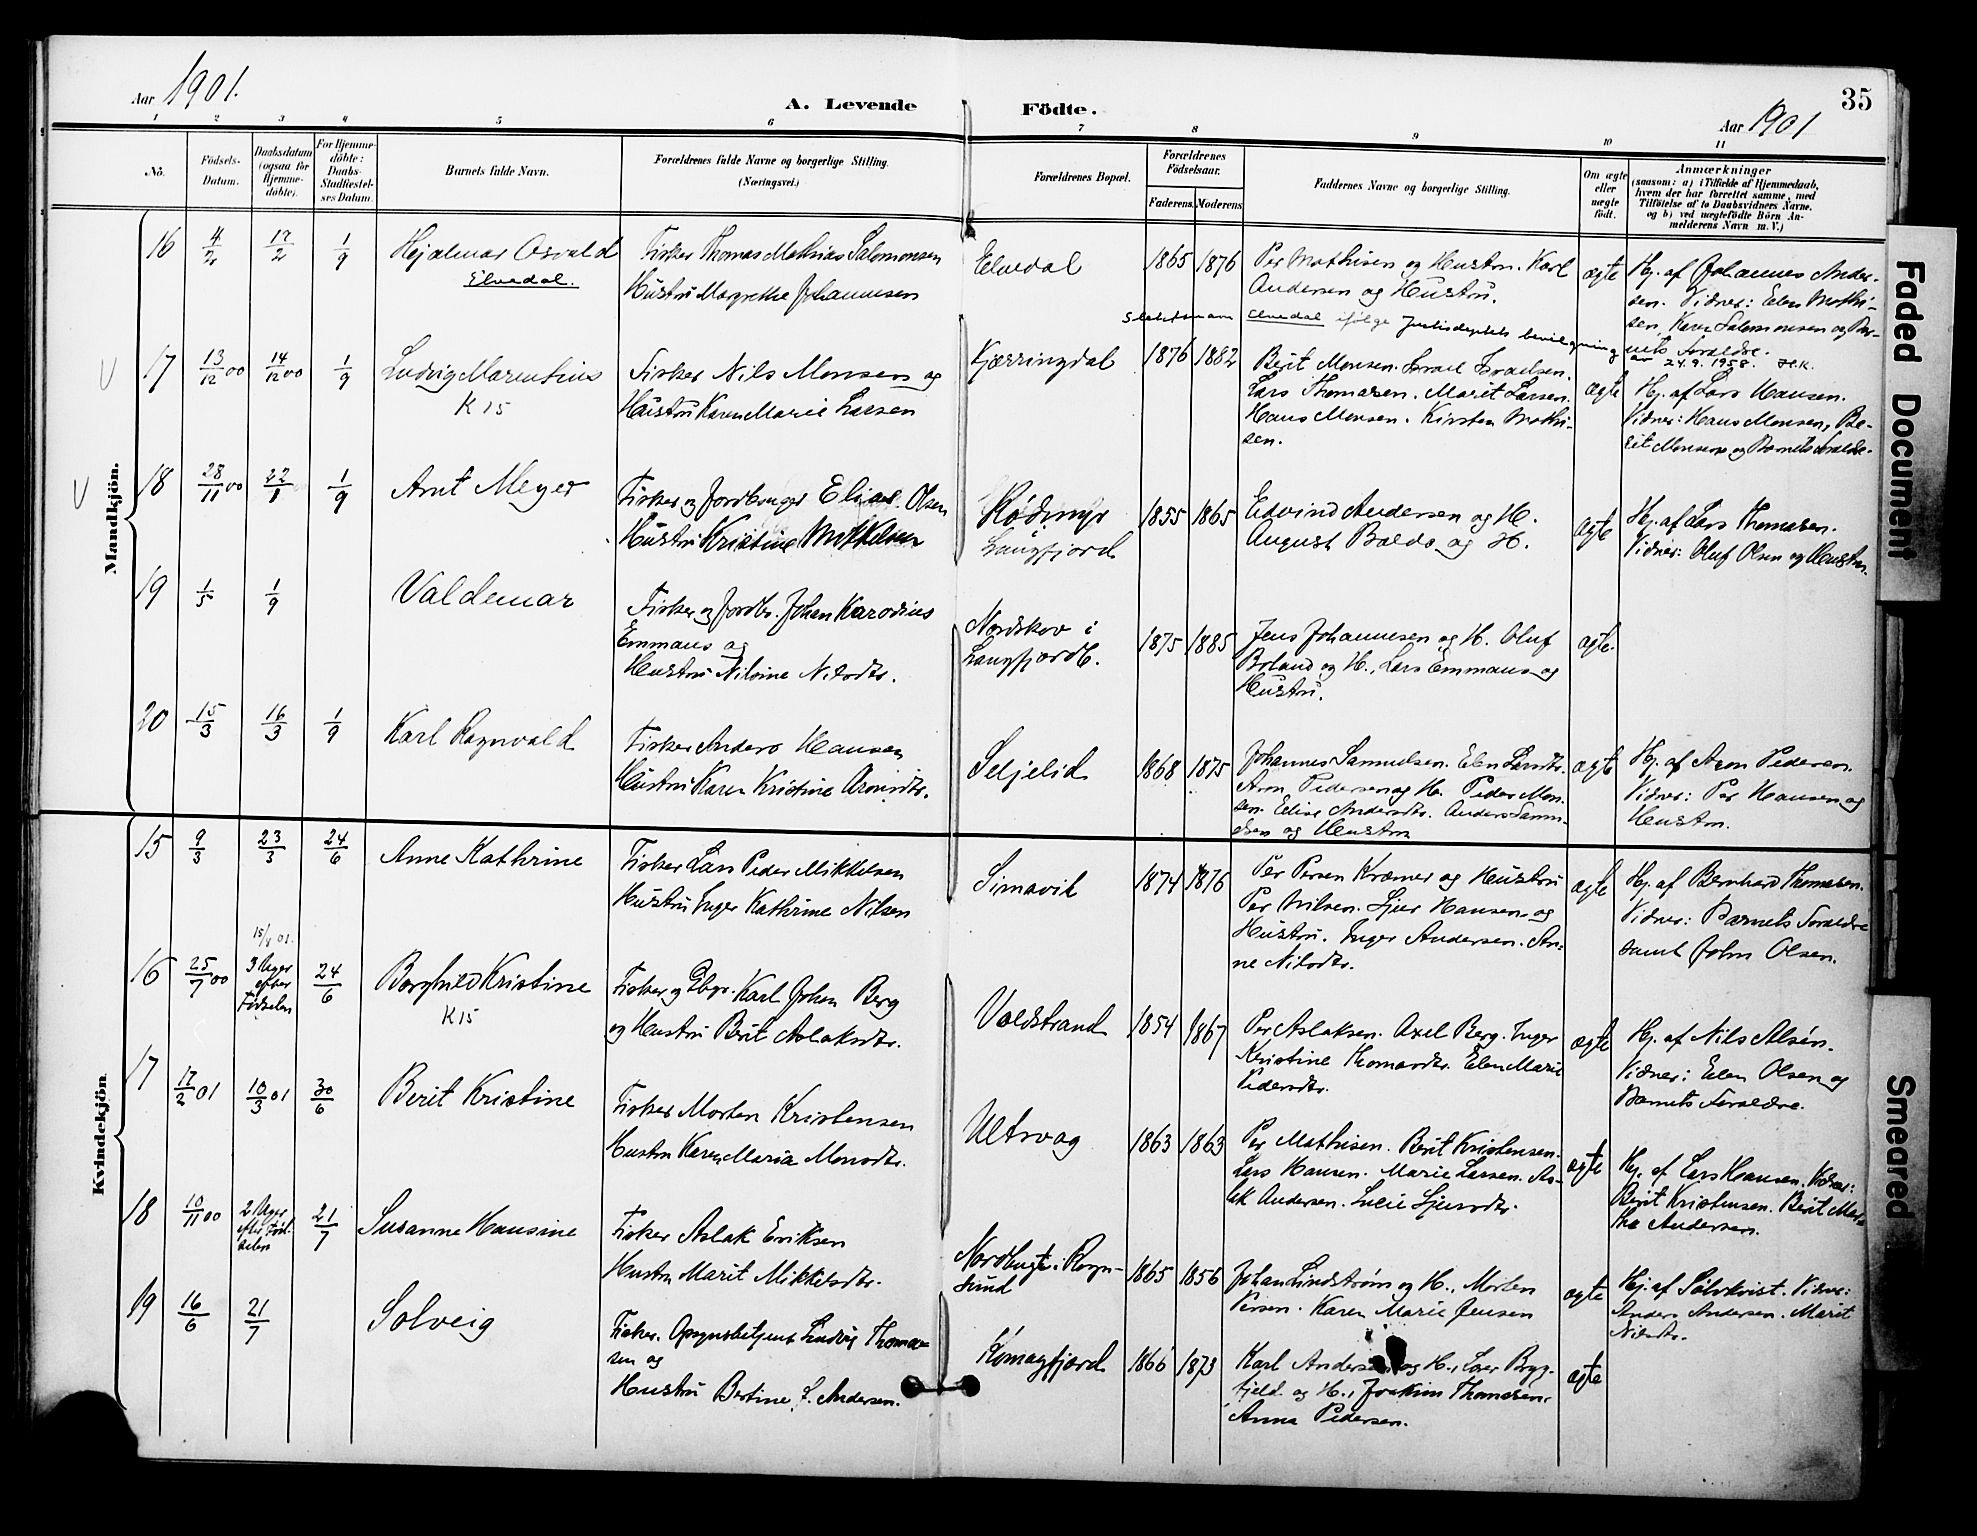 Aar 1901.
A. Levende Födte.
Aar 1901
35
1 2 3 4 5 6 7 8 9 10 11
Nö.
Födsels-Datum.
Daabsdatum (ogsaa for Hjemmedöbte).
For Hjemmedöbte: Daabs-Stadfæstelses Datum.
Barnets fulde Navn.
Forældrenes fulde Navne og borgerlige Stilling.
(Næringsvei.)
Forældrenes Bopæl.
Forældrenes Födselsaar.
Faderens. Moderens.
Faddernes Navne og borgerlige Stilling.
Om ægte eller uægte födt.
Anmærkninger
(saasom: a) i Tilfælde af Hjemmedaab,
hvem der har forrettet samme, med
Tilföielse af to Daabsvidners Navne.
og b) ved uægtefödte Börn Anmelderens
Navn m. V.)
Mandkjön.
16 4/2 17/2 1/9 Hjalmar Osvald
Elvedal.
Fisker Thomas Mathias Salomonsen
Hustru Margrethe Johannesen
Elvedal 1865 1876
Per Mathisen og Hustru. Karl
Andersen og Hustru.
ægte
Hj. af Johannes Andersen.
Vidner: Elen Mathisen,
Karen Salomonsen og Barnets
Forældre.
Slektsnavn Elvedal ifølge Justisdeptets bevilgning
av 24.9.1958. H.K.
17 13/12 00 14/12 00 1/9 Ludvig Marentius
K 15
Fisker Nils Monsen og
Hustru Karen Marie Larsen
Kjærringdal 1876 1882
Berit Monsen. Israel Israelsen.
Lars Thomasen. Marit Larsen.
Hans Monsen. Kirsten Mathisen.
ægte
Hj. af Lars Hansen.
Vidner: Hans Monsen, Berit
Monsen og Barnets Forældre.
18 28/11 00 22/1 1/9 Arnt Meyer
Fisker og Jordbruger Elias Olsen
Hustru Kristine Mikkelsen
Rødmyr
Langfjord
1855 1865
Edvind Andersen og H.
August Baldo og H.
ægte
Hj. af Lars Thomasen.
Vidner: Oluf Olsen og Hustru.
19 1/5 1/9 Valdemar
Fisker og Jordbr. Johan Karodius
Emmaus og
Hustru Nilsine Nilsdtr.
Nordskov i
Langfjordb.
1875 1885
Jens Johannesen og H. Oluf
Boland og H., Lars Emmaus og
Hustru.
ægte.
20 15/3 16/3 1/9 Karl Ragnvald
Fisker Anders Hansen
Hustru Karen Kristine Aronsdtr.
Seljelid 1868 1875
Johannes Samuelsen. Elen Larsdtr.
Aron Pedersen og H. Peder Monsen.
Elise Andersdtr. Anders Samuelsen
og Hustru
ægte
Hj. af Aron Pedersen.
Vidner: Per Hansen og
Hustru.
Kvindekjön
15 9/3 23/3 24/6 Anne Kathrine
Fisker Lars Peder Mikkelsen
Hustru Inger Kathrine Nilsen
Simavik 1874 1876
Per Persen Kræmer og Hustru
Per Nilsen. Sjur Hansen og
Hustru. Inger Andersen. Anne
Nilsdtr.
ægte
Hj. af Bernhard Thomasen.
Vidner: Barnets Forældre
samt John Olsen.
16 25/7 00 3 Uger
efter
Fødselen 24/6 Borghild Kristine
K 15
Fisker og Gbgr. Karl Johan Berg
og Hustru Berit Aslaksdtr.
Valdstrand 1854 1867
Per Aslaksen. Axel Berg. Inger
Kristine Thomasdtr. Elen Marie
Pedersdtr.
ægte
Hj. af Nils Alsén.
Vidner: Elen Olsen og
Barnets Forældre.
17 17/2 01 10/3 01 30/6 Berit Kristine
Fisker Morten Kristensen
Hustru Karen Maria Monsdtr.
Ultsvag 1863 1863
Per Mathisen. Berit Kristensen.
Lars Hansen. Marie Larsen. Aslak
Andersen. Lucie Sjursdtr.
ægte
Hj. af Lars Hansen. Vidner:
Berit Kristensen. Berit Martha
Andersen.
18 10/11 00 2 Uger
efter Fødselen 21/7 Susanne Hansine
Fisker Aslak Eriksen
Hustru Marit Mikkelsdtr.
Nordbugt i Rognsund
1865 1856
Johan Lindstrøm og H., Morten
Persen. Karen Marie Jensen
ægte
Hj. af Sølvkvist. Vidner:
Anders Andersen. Marit
Nilsdtr.
19 16/6 21/7 Solveig
Fisker. Opsynsbetjent Ludvig Thomasen
og
Hustru Bertine L. Andersen.
Komagfjord 1866 1873
Karl Andersen og H., Lars Bryggfjeld
og H., Joakim Thomasen.
Anna Pedersen.
ægte
Faded Document
Smeared